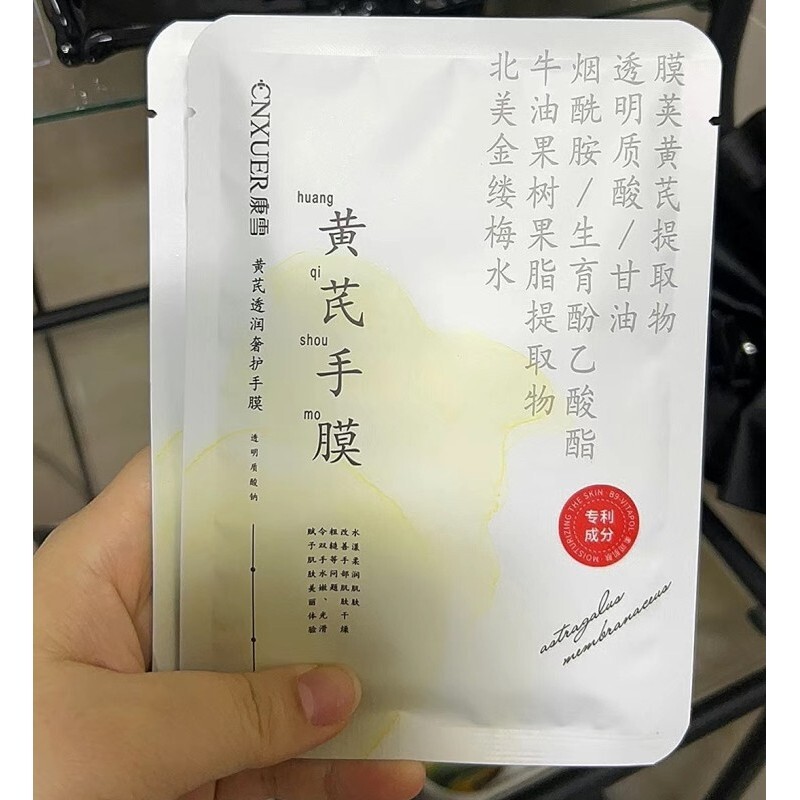 CNXUER 康雪
黄芪透润奢护手膜
透明质酸钠
huang
黄
qi
芪
shou
手
mo
膜
膜荚黄芪提取物
透明质酸/甘油
烟酰胺/生育酚乙酸酯
牛油果树果脂提取物
北美金缕梅水
水漾柔润肌肤
改善手部肌肤干燥
粗糙等问题
令双手水嫩、光滑
赋予肌肤美丽体验
MOISTURIZING THE SKIN · B9-VITAPOL
专利
成分
astragalus
membranaceus